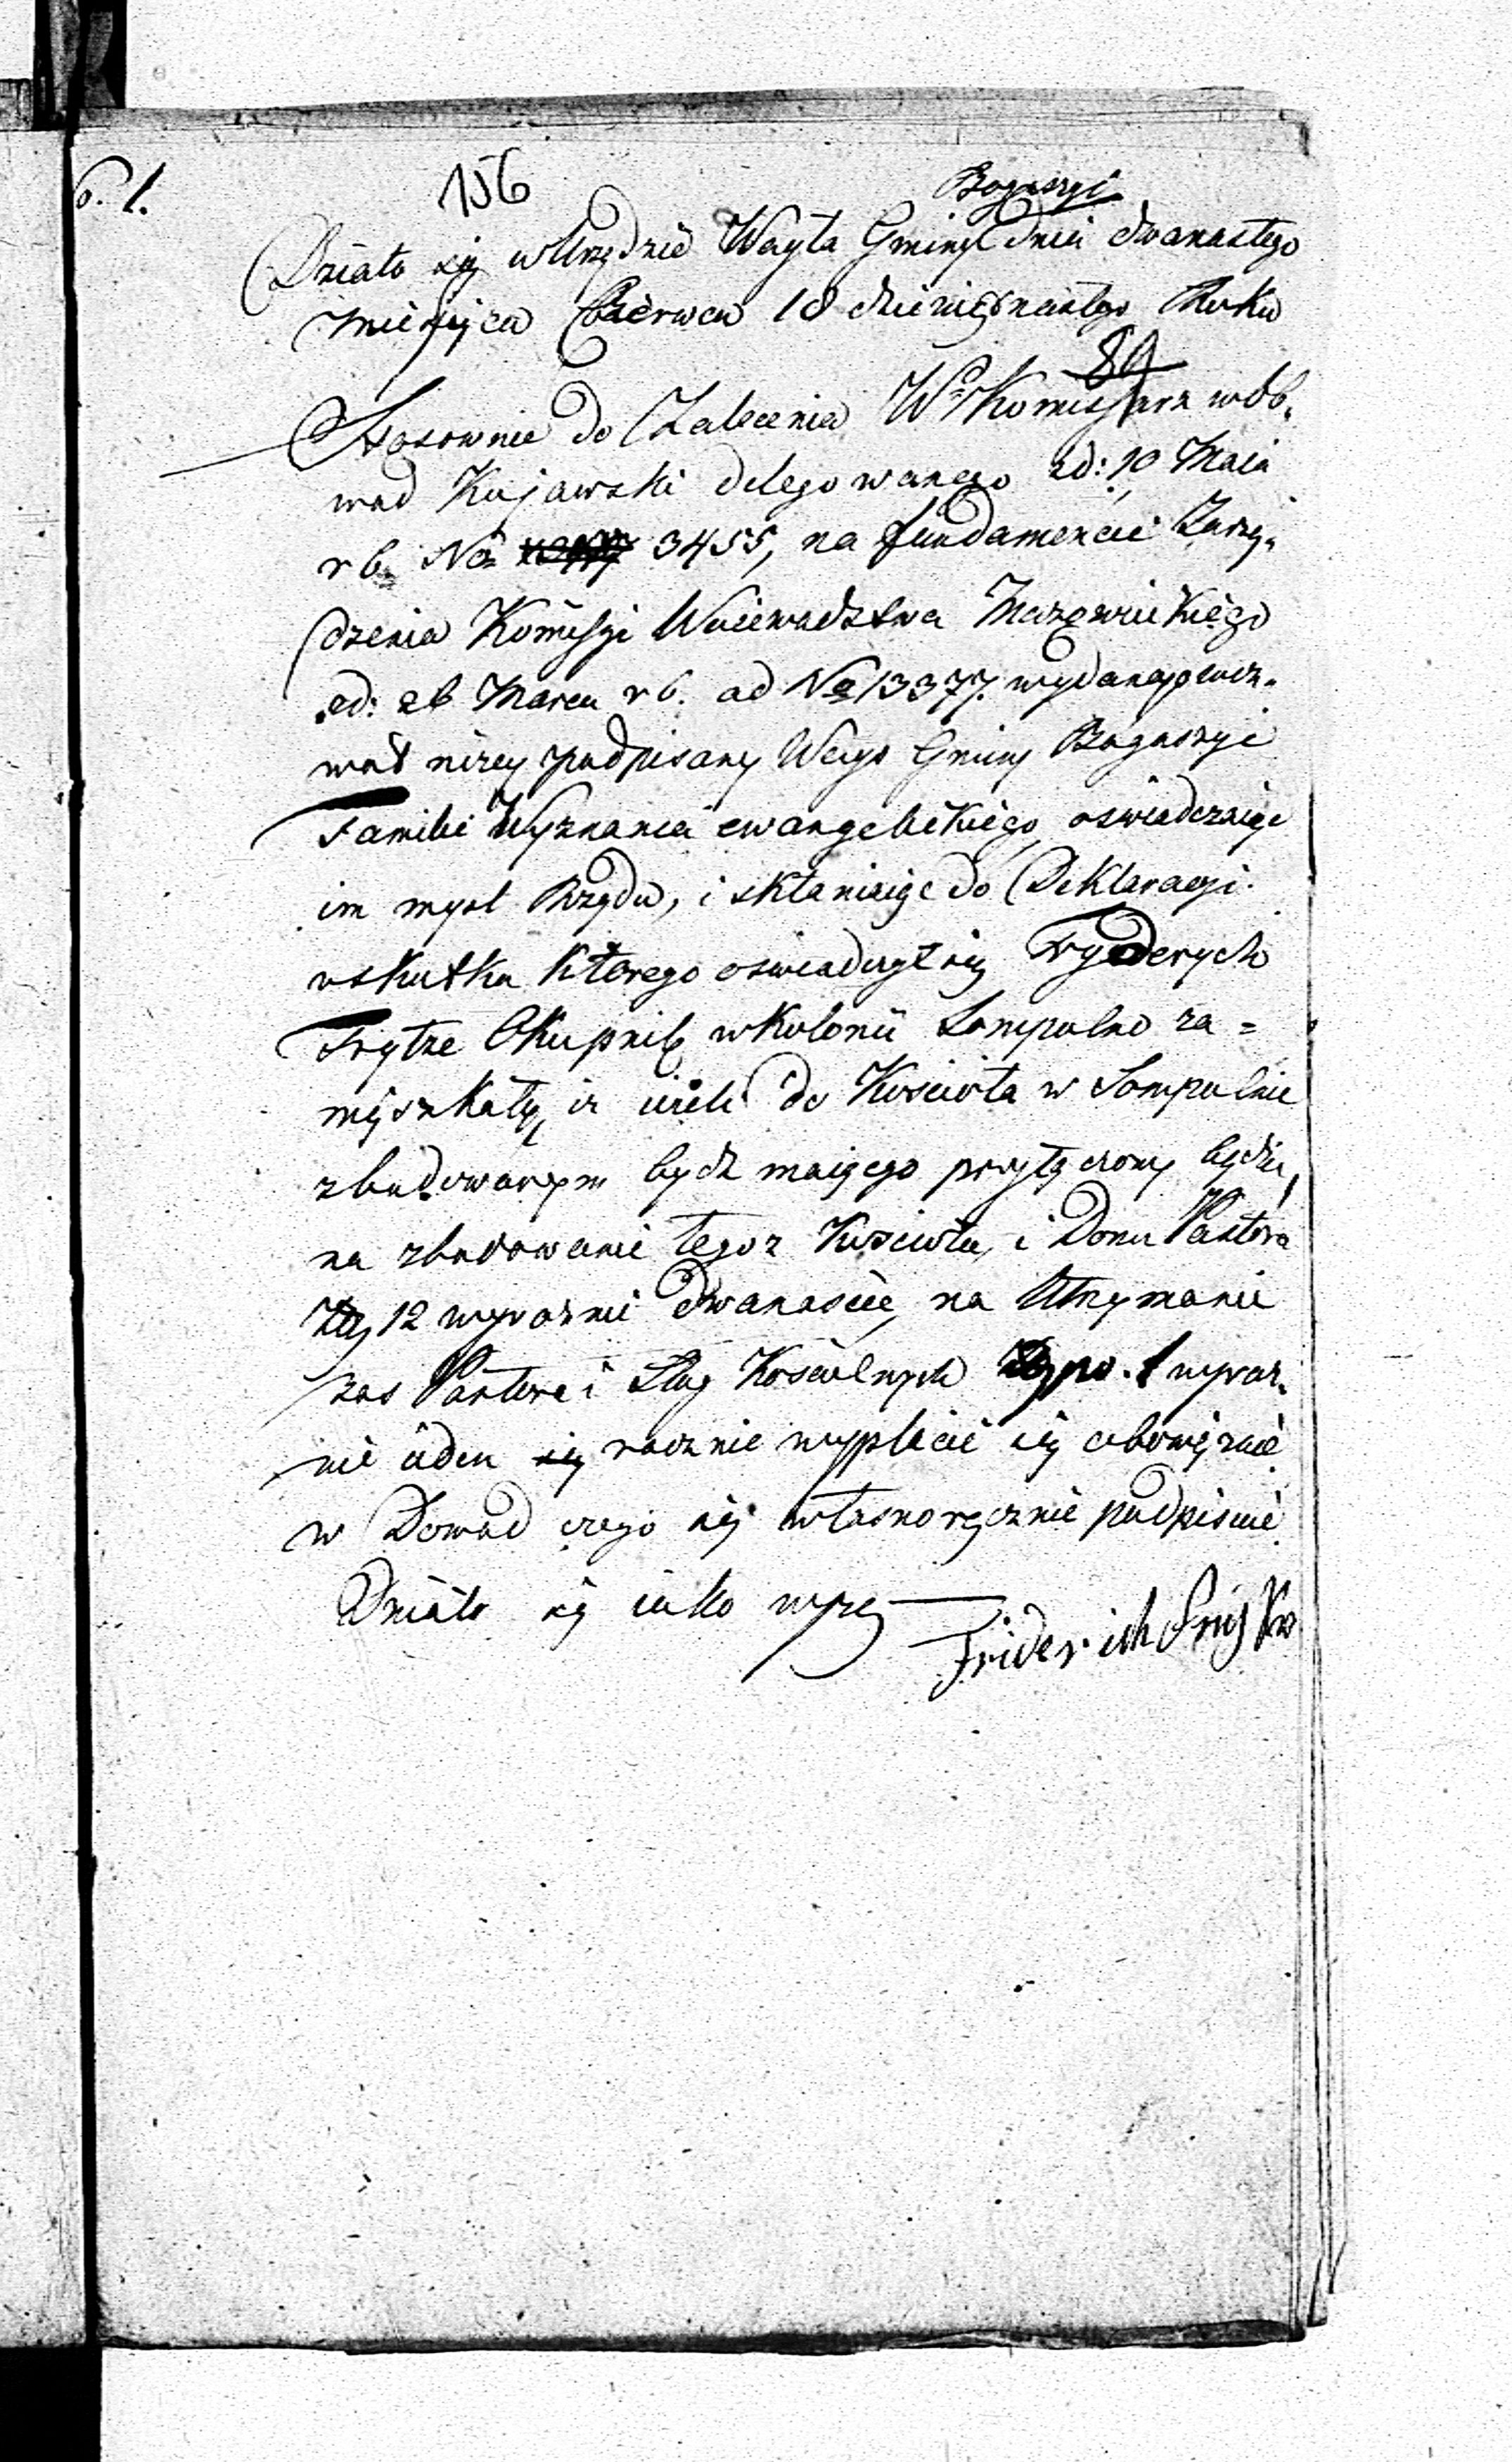 6. 1.
156
Boguszyc
Działo się w Urzędzie Wayta Gminy dnia dwanastego
miesiąca Czerwca 18 dziewięt nastego Roku
89
Stosownie do Zalecenia W° Kommissarza w ob-
wod Kujawski delegowanego zd: 10 Maia
r b. No 3455, na fundamencie Zarzą-
dzenia Komissyi Woiewodztwa Mazowieckiego
ed: 26 Marca r b. ad No 13377.
niżey podpisany Woyt Gminy Boguszyc
Familie Wyznania ewangelickiego oswiadczaiąc
im mysl Rządu, i skłaniaiąc do Deklaracyi.
w skutku ktorego oswiadczył się Fryderych
Frytze Okupnik w Kolonii Sompolno za=
mięszkały, iż ieżeli do Kościoła w Sompolnie
zbudowanym bydz maiącego przyłączony będzie,
na zbudowanie tegoż Kościoła, i Domu Pastora
Złł 12 wyraznie dwanascie, na Utrzymanie
zas Pastora i Sług Kościelnych 1 wyraz-
nie ieden się rocznie wypłacić się obowiązuie.
w Dowod czego się własnoręcznie podpisuie.
Działo się iako wyzey
Friderich